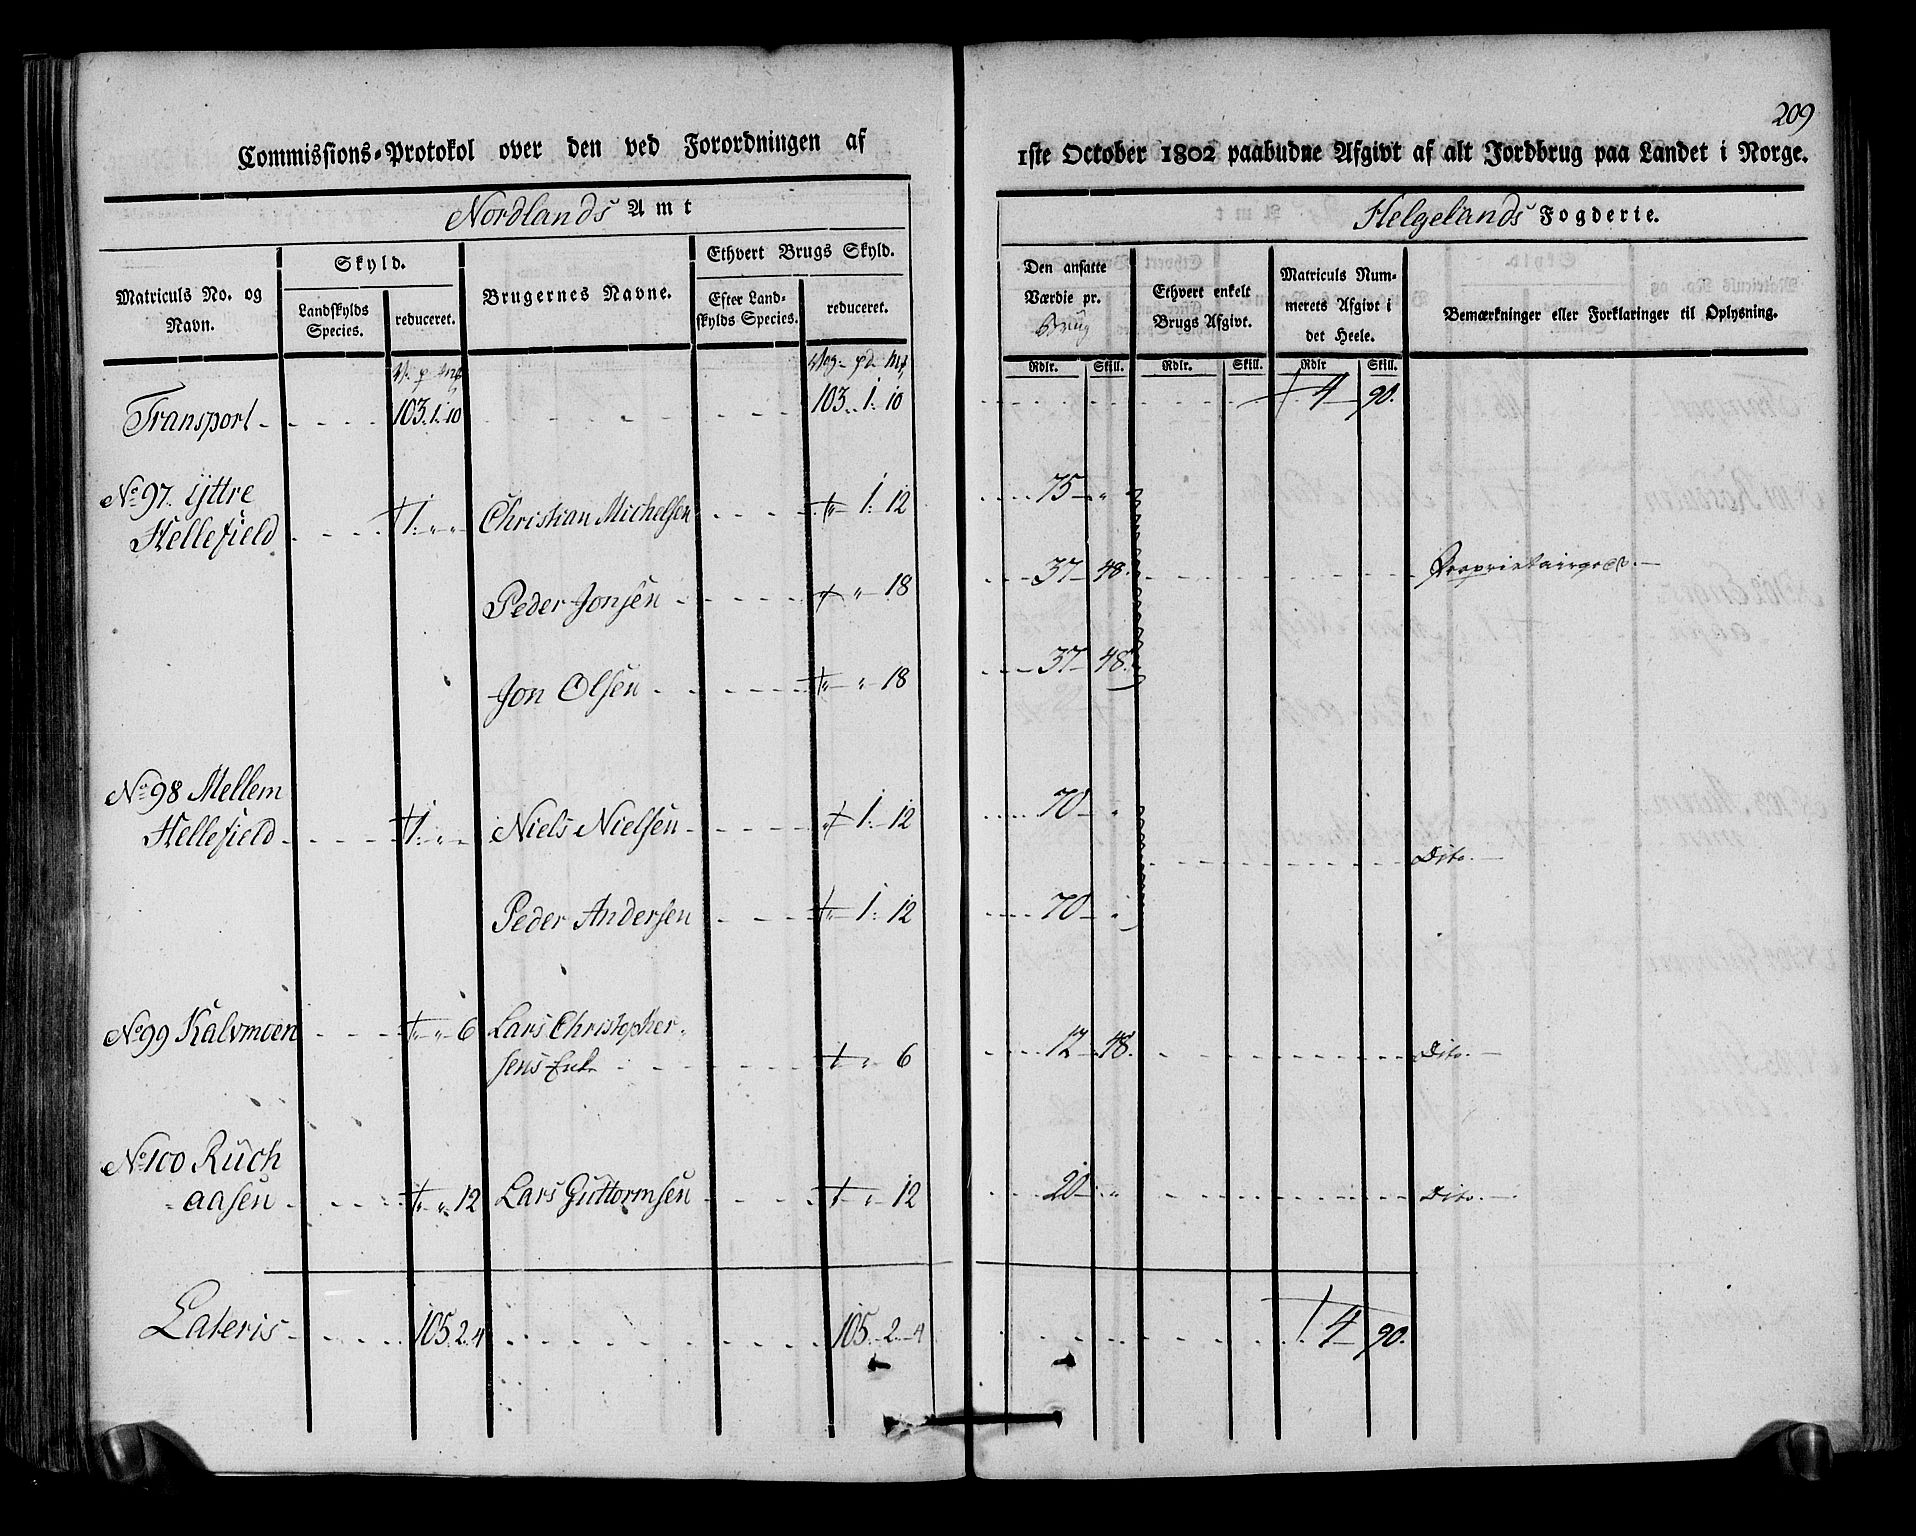 209
Commissions-Protokol over den ved Forordningen af
1ste October 1802 paabudne Afgivt af alt Jordbrug paa Landet i Norge.
Nordlands Amt
Helgelands Fogderie.
Matriculs No. og
Navn.
Skyld.
Landskylds
Species.
reduceret.
Brugernes Navne.
Ethvert Brugs Skyld.
Efter Land-
skylds Species.
reduceret.
Den ansatte
Værdie pr.
Brug
Ethvert enkelt
Brugs Afgivt.
Matriculs Num-
merets Afgivt i
det Heele.
Bemærkninger eller Forklaringer til Oplysning.
Rdlr. Skill. Rdlr. Skill. Rdlr Skill.
Transport 103. 1. 10 103. 1. 10 4 90.
No 97. Yttre
Hellefield 1. " " Christian Michelsen " 1. 12 75 "
Peder Jonsen " " 18 37 48. Proprietairgods.
Jon Olsen " " 18 37 48.
No 98 Mellem
Hellefield 1. " " Niels Nielsen " 1. 12 70 "
Dito.
Peder Andersen " 1. 12 70 "
No 99 Kalvmoen " " 6 Lars Christopher-
sens Enke " " 6 12 48. Dito.
No 100 Ruch
aasen " " 12 Lars Guttormsen " " 12 20 " Dito.
Lateris 105. 2. 4 105. 2. 4 4 90.